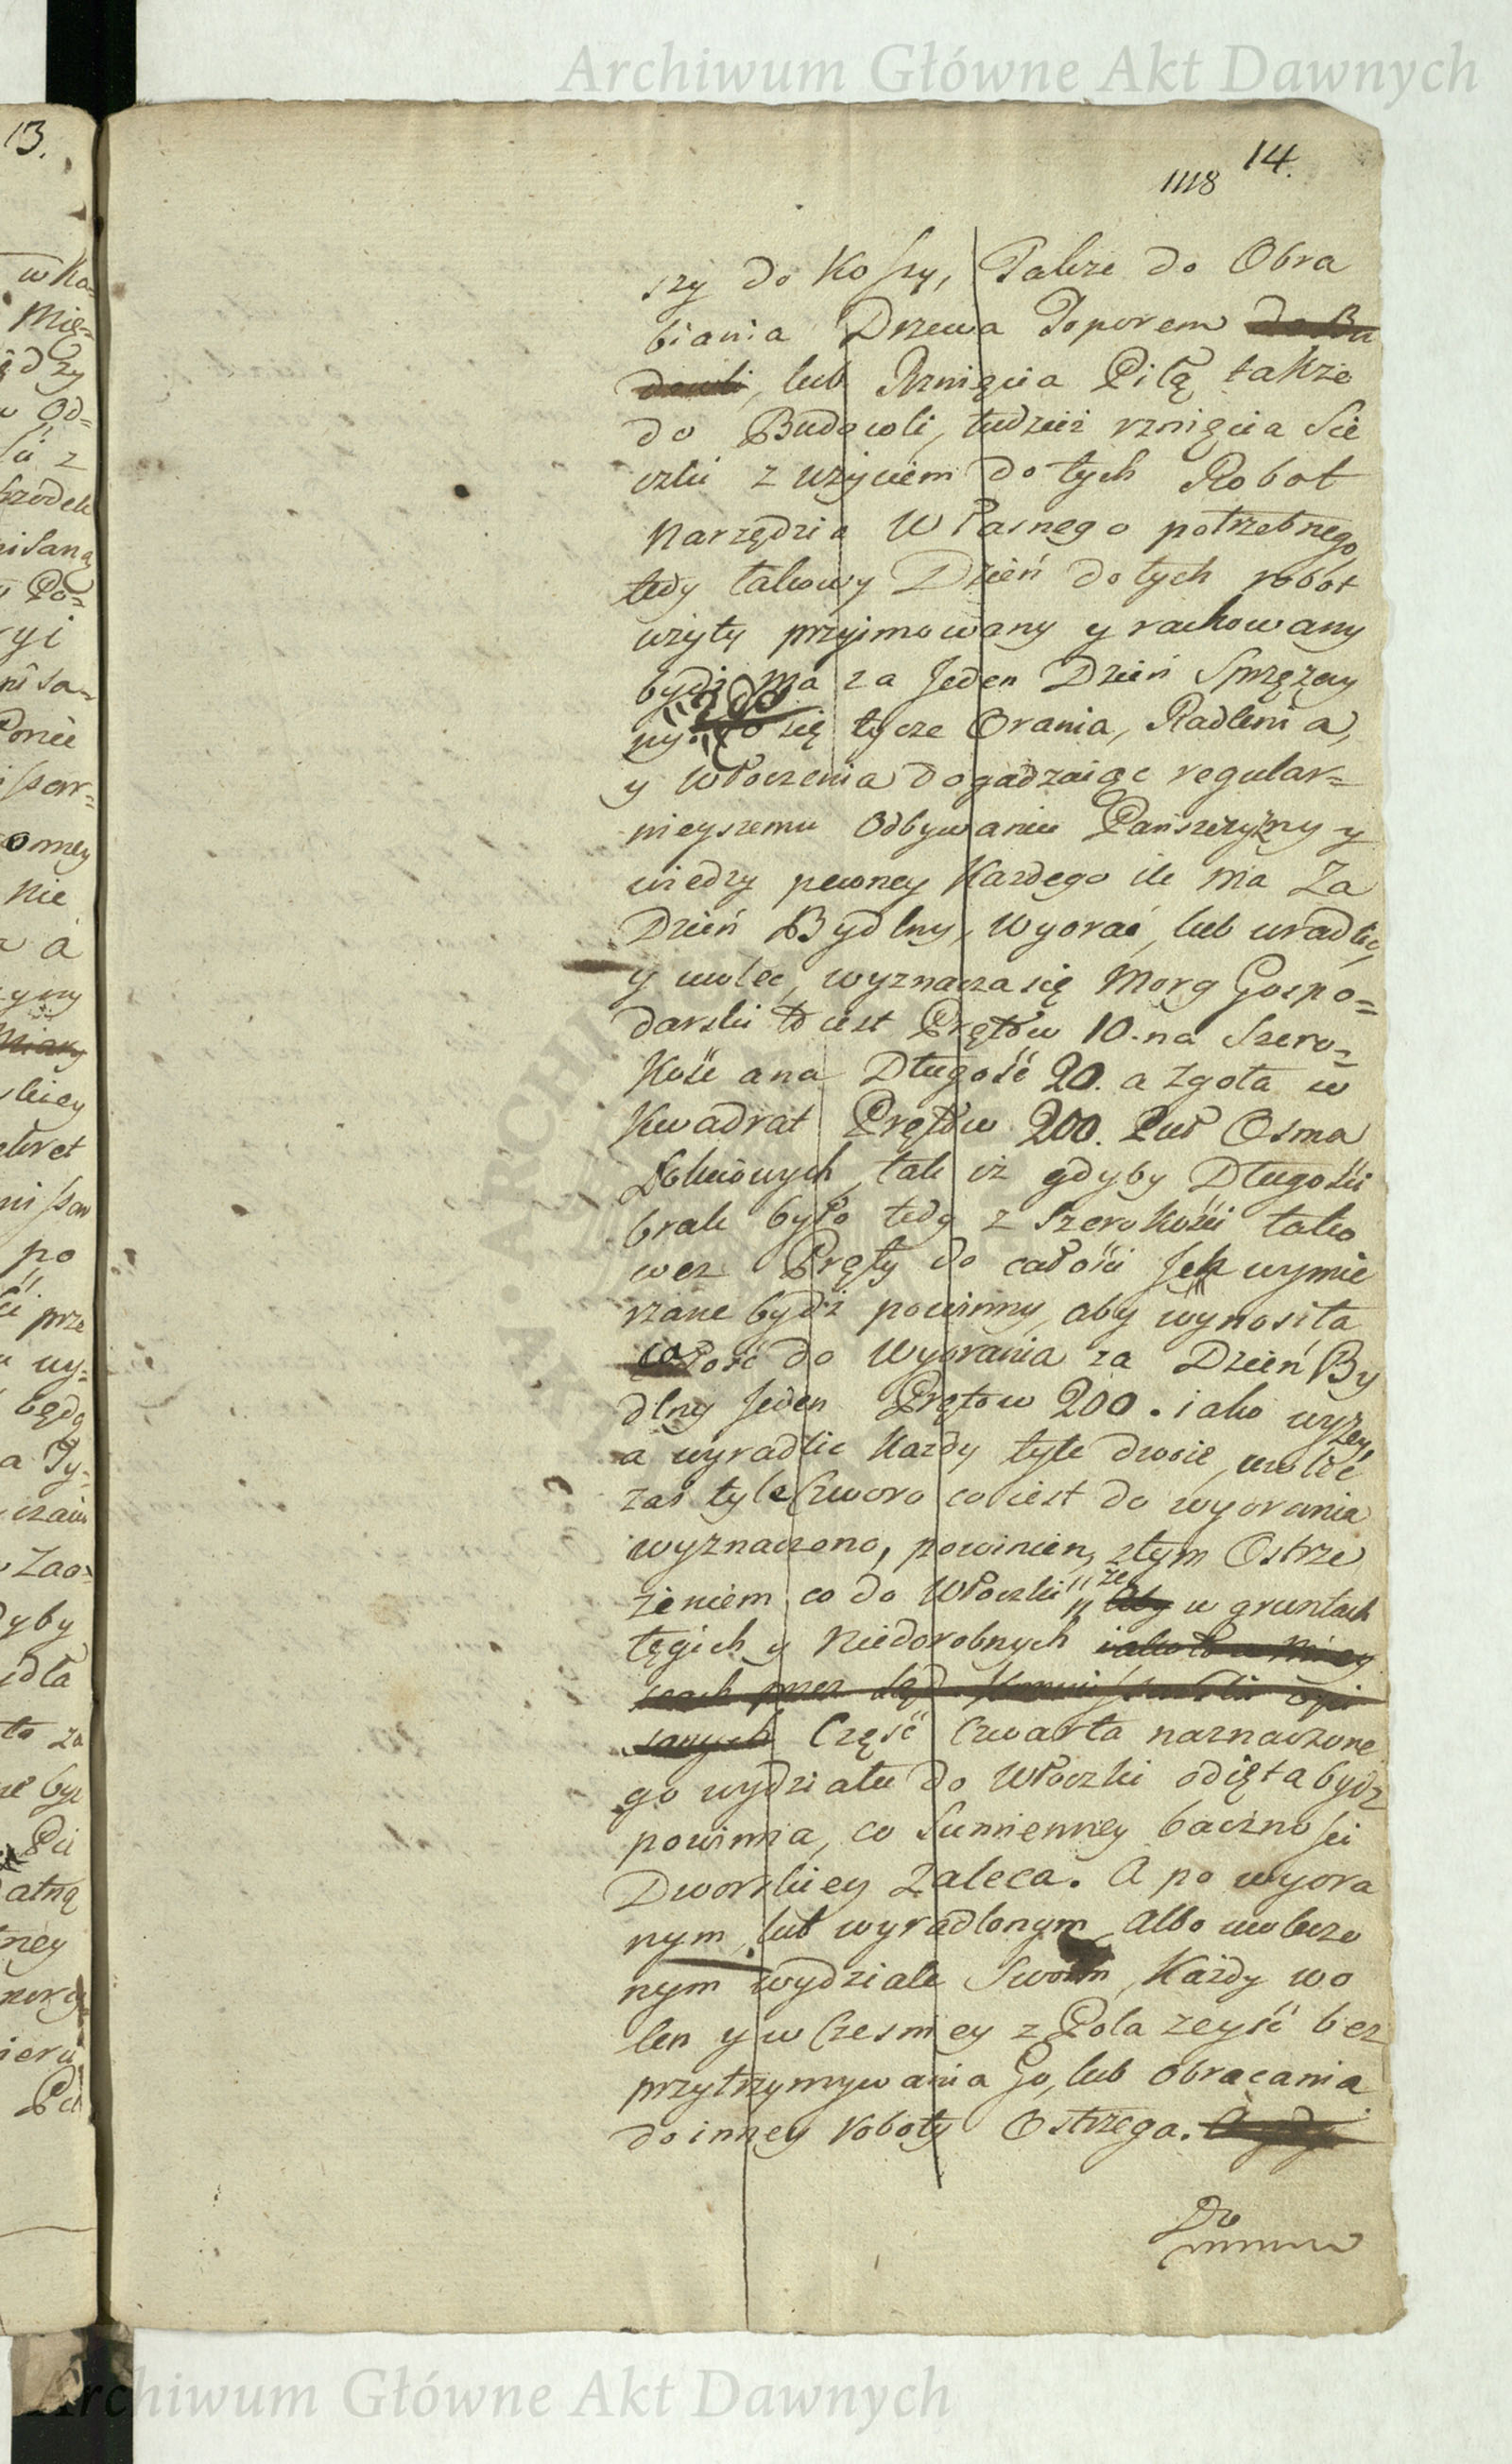 Archiwum Główne Akt Dawnych
14.
1118
szy do Kossy, Także do Obra
biania Drzewa Toporem do Bu
dowli, lub Rznięcia Piłą także
do Budowli, tudzież rznięcia Sie
czki z użyciem do tych Robot
Narzędzia Własnego potrzebnego
tedy takowy Dzień do tych robot
użyty przyjmowany y rachowany
bydź ma za Jeden Dzień Sprzężay
ny. Co do się tycze Orania, Radlenia,
y Włoczenia dogadzaiąc regular=
nieyszemu Odbywaniu Pańszczyzny y
wiedzy pewney Każdego ile ma Za
Dzień Bydlny, Wyorać, lub uradlić,
y uwlec, wyznacza się Morg Gospo=
darski to iest Prętów 10. na Szero=
kość a na Długość 20. a zgoła w
Kwadrat Prętów 200. Puł Osma
Łokciowych, tak iż gdyby Długości
brak było tedy z Szerokości tako
wez Pręty do całości Jch wymie
rzane bydź powinny, aby wynosiła
całość do Wyorania za Dzień By
dlny Jeden Prętow 200. iako wyżey,
a wyradlić Każdy tyle dwoie, uwlec
zaś tyle Czworo co iest do wyorania
wyznaczono, powinien, z tym Ostrze
żeniem co do Włoczki że aby w gruntach
tęgich y Niedorobnych iako to w Miey
scach przez Sąd Kommissarski opi
sanych Część Czwarta naznaczone
go wydziału do Włoczki odięta bydz
powinna, co Sumienney bacznosci
Dworskiey Zaleca. A po wyora
nym, lub wyradlonym, albo uwleczo
nym wydziale Swoim, Każdy wo
len y w Czesniey z Pola zeyść bez
przytrzymywania Go, lub obracania
do inney roboty Ostrzega. A gdy
Do
13.
w Ko=
Mię=
Od=
po
prze
będą
Archiwum Główne Akt Dawnych